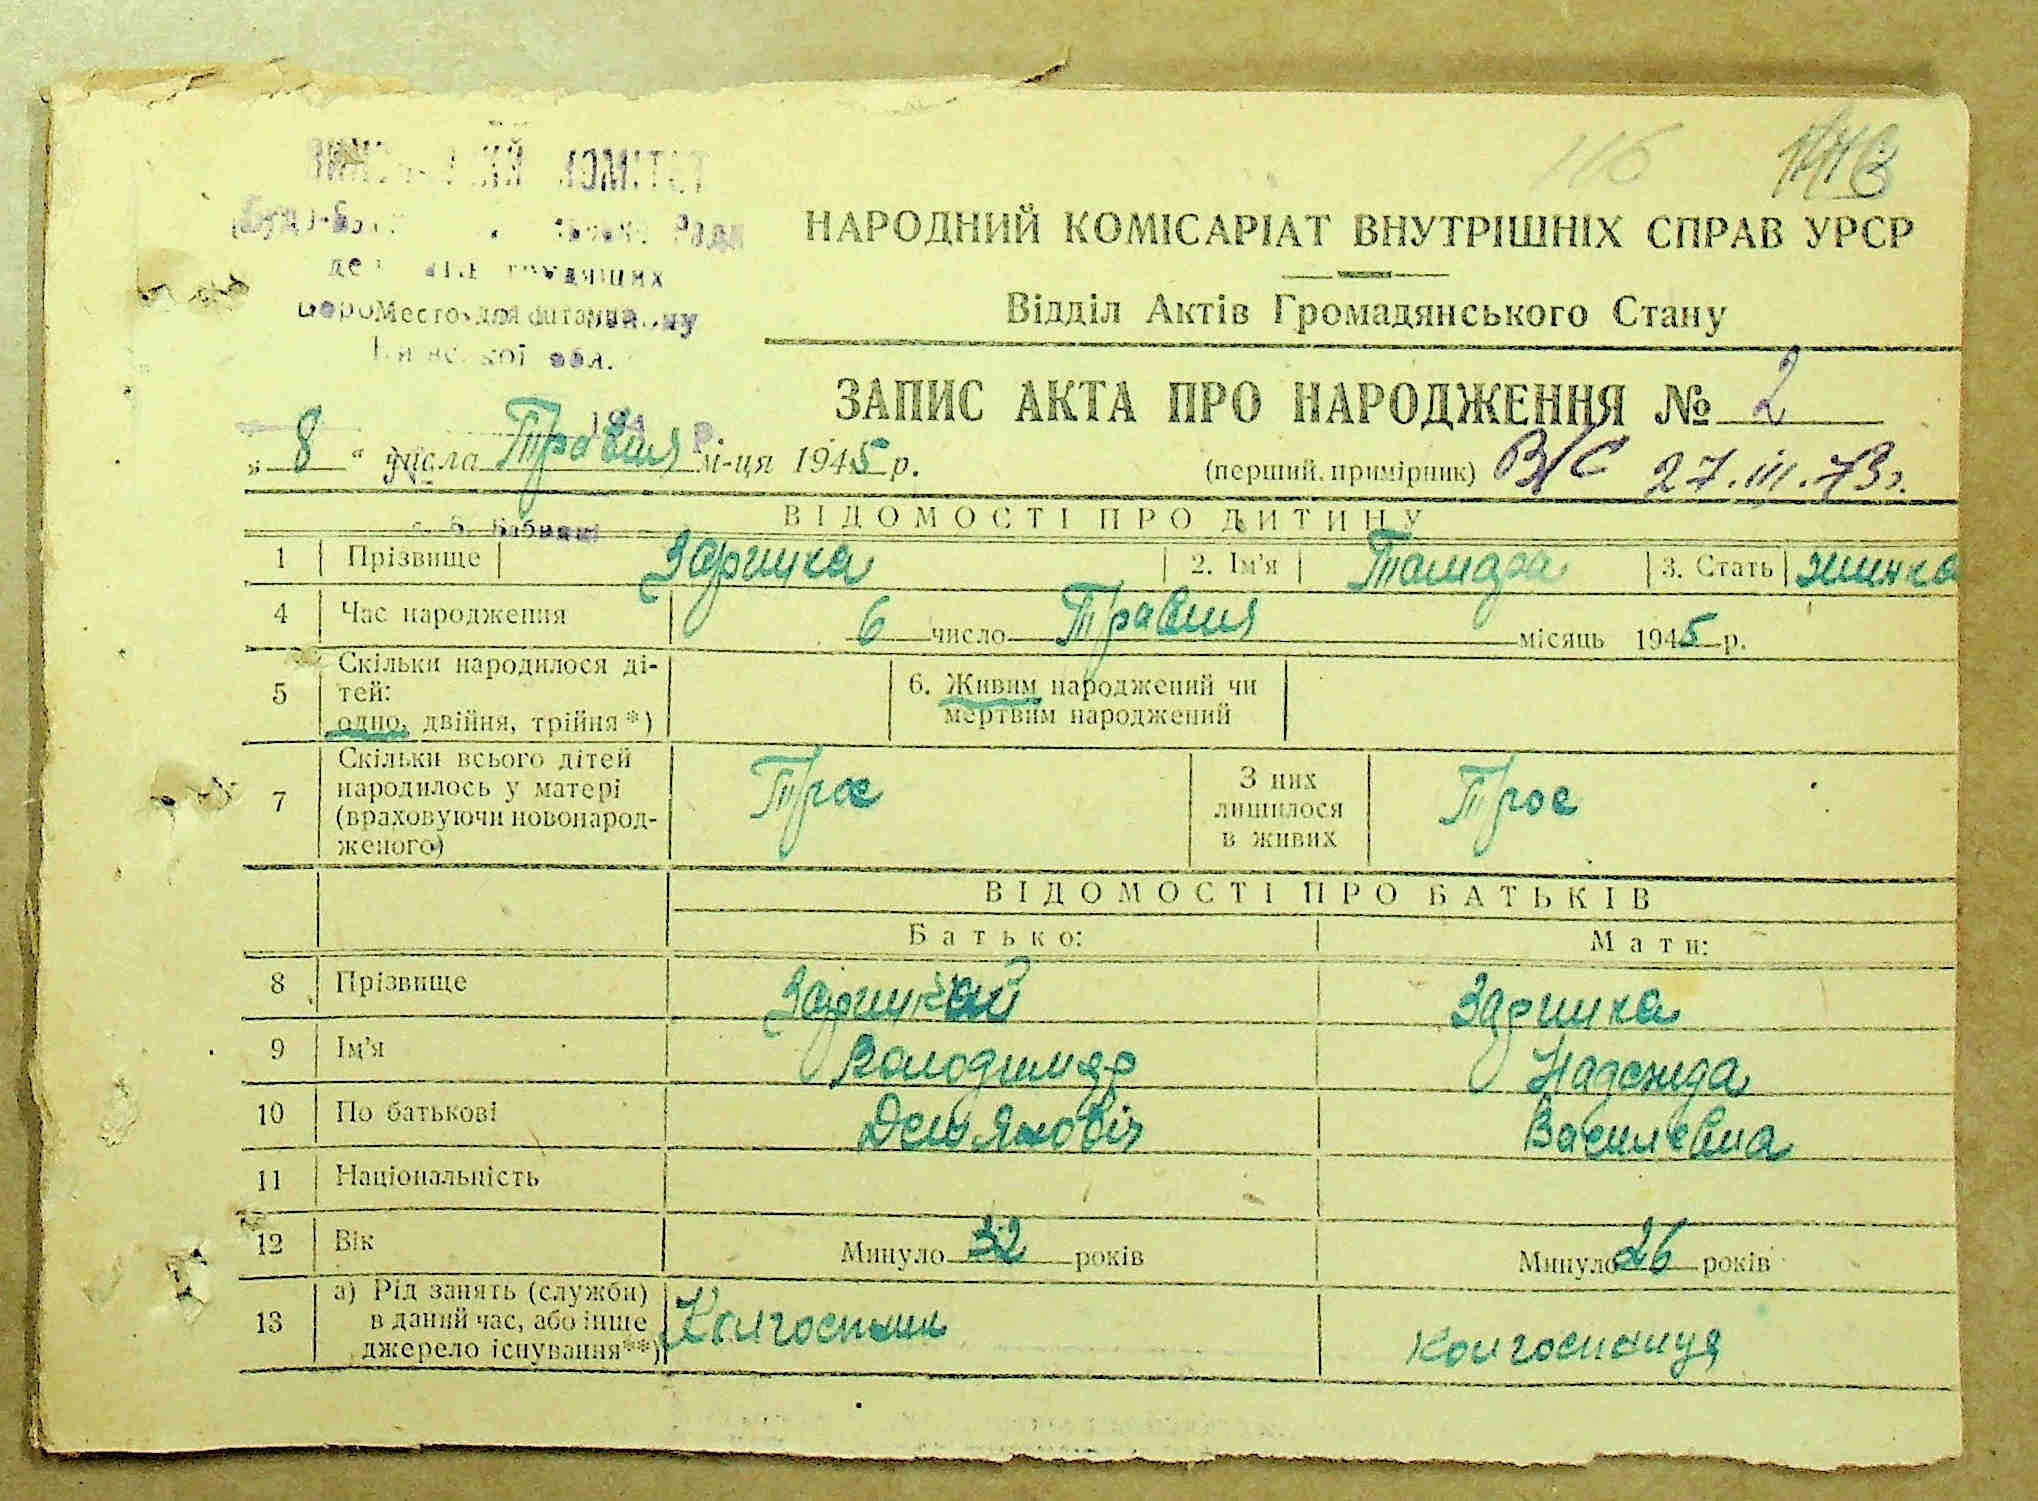 116
НАРОДНИЙ КОМІСАРІАТ ВНУТРІШНІХ СПРАВ УРСР
Відділ Актів Громадянського Стану
Место для штампа
обл.
ЗАПИС АКТА ПРО НАРОДЖЕННЯ № 2
„ 8 “ числа Травня м-ця 1945 р.
(перший примірник) В/С 27.III.73г.
ВІДОМОСТІ ПРО ДИТИНУ
1 Прізвище Зарицка 2. Ім'я Тамара 3. Стать жинка
4 Час народження 6 число Травня місяць 1945 р.
5 Скільки народилося ді-
тей:
одно, двійня, трійня*)
6. Живим народжений чи
мертвим народжений
7 Скільки всього дітей
народилось у матері
(враховуючи новонарод-
женого)
Трое
З них
лишилося
в живих
Трое
ВІДОМОСТІ ПРО БАТЬКІВ
Батько: Мати:
8 Прізвище Зарицкий Зарицка
9 Ім'я Володимер Надежда
10 По батькові Демянович Василевна
11 Національність
12 Вік Минуло 32 років Минуло 26 років
13 а) Рід занять (служби)
в даний час, або інше
джерело існування**)
Колгоспник Колгоспниця